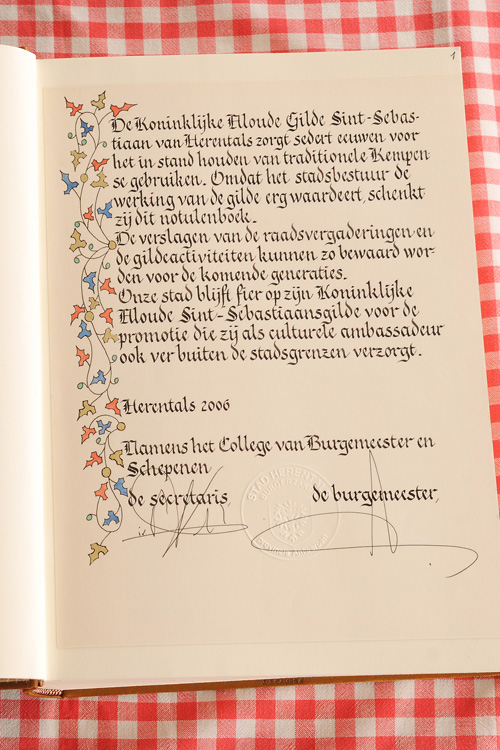 1
De Koninklijke Aloude Gilde Sint-Sebas-
tiaan van Herentals zorgt sedert eeuwen voor
het in stand houden van traditionele Kempen
se gebruiken. Omdat het stadsbestuur de
werking van de gilde erg waardeert, schenkt
zij dit notulenboek.
De verslagen van de raadsvergaderingen en
de gildeactiviteiten kunnen zo bewaard wor-
den voor de komende generaties.
Onze stad blijft fier op zijn Koninklijke
Aloude Sint-Sebastiaansgilde voor de
promotie die zij als culturele ambassadeur
ook ver buiten de stadsgrenzen verzorgt.
Herentals 2006
Namens het College van Burgemeester en
Schepenen
de secretaris,
de burgemeester,
STAD HERENTALS